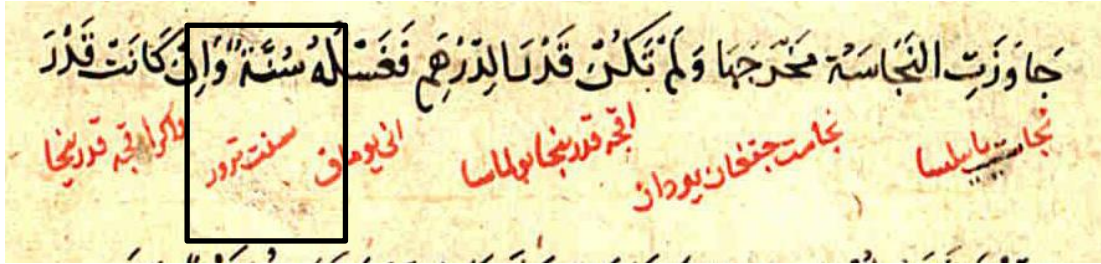 جَاوَزَتِ النَّجَاسَةُ مَخْرَجَهَا وَلَمْ تَكُنْ قَدْرَ الدِّرْهَمِ فَغَسْلُهُ سُنَّةٌ وَاِنْ كَانَتْ قَدْرَ
نجاست يايلسا نجاست جقغان يردان اقچه قدرينجا بولماسا انى يوماق سنت ترور واكر اقچه قدرينجا